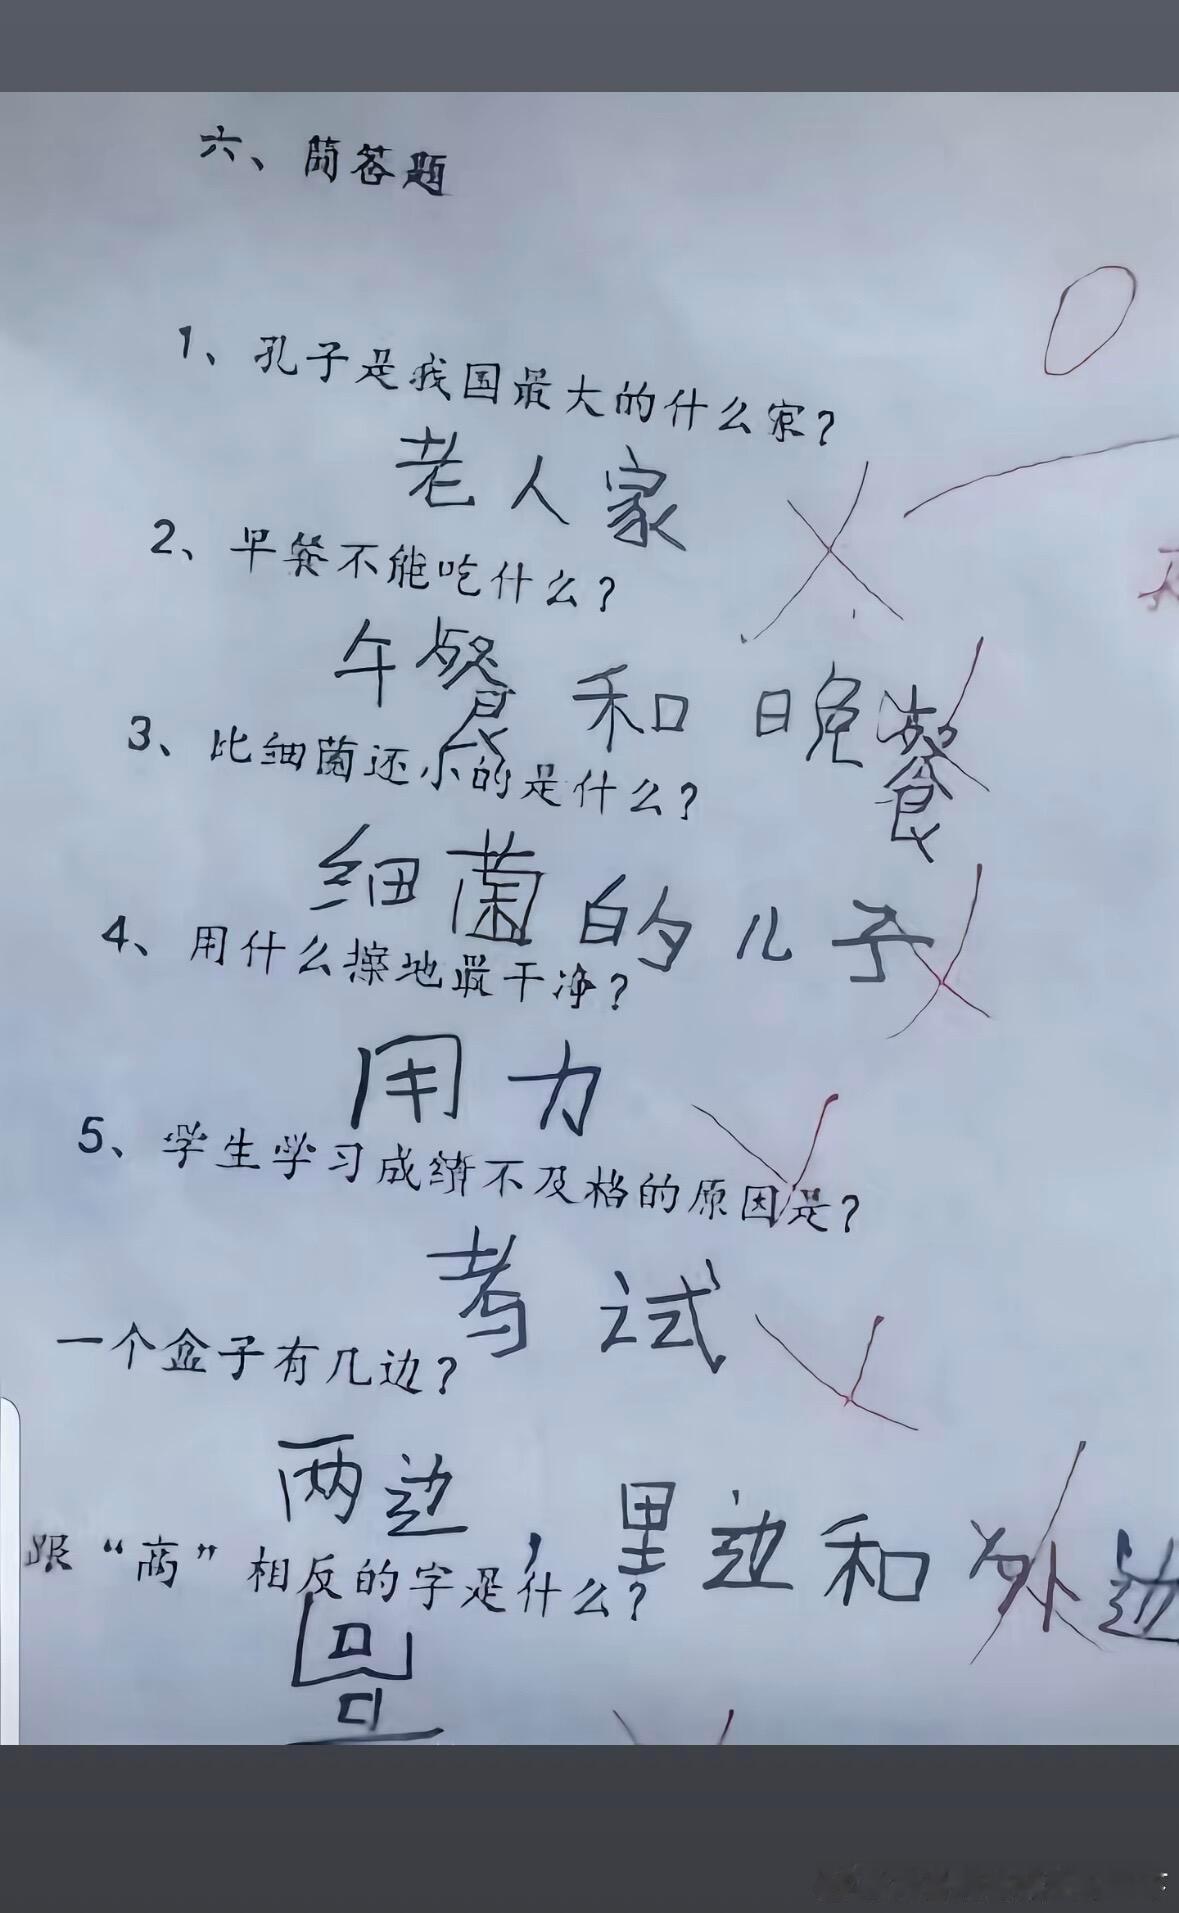 六、简答题
1、孔子是我国最大的什么家?
老人家
2、早餐不能吃什么?
午餐和晚餐
3、比细菌还小的是什么?
细菌的儿子
4、用什么擦地最干净?
用力
5、学生学习成绩不及格的原因是?
考试
一个盒子有几边?
两边,里边和外边
跟“高”相反的字是什么?